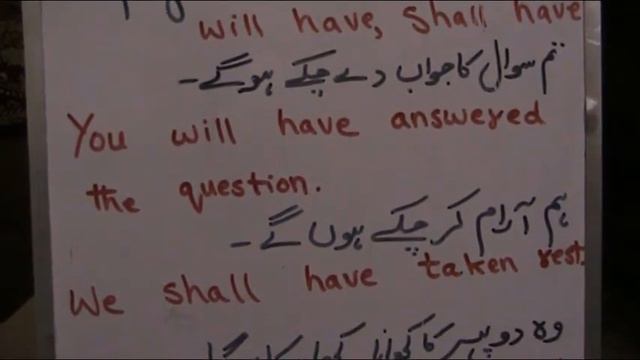 will have, shall have
تم سوال کا جواب دے چکے ہو گے۔
You will have answered
the question.
ہم آرام کر چکے ہوں گے۔
We shall have taken rest.
وہ دوپہر کا کھانا